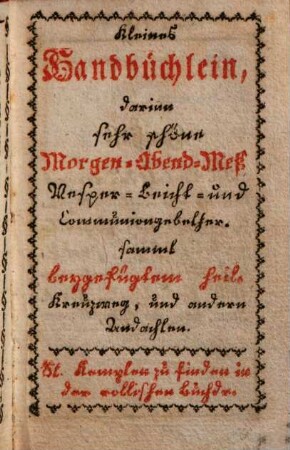 Kleines
Handbüchlein,
darinn
sehr schöne
Morgen-Abend-Meß
Vesper-Beicht-und
Communiongebether.
sammt
beygefügtem heil.
Kreuzweg, und andern
Andachten.
St. Kempten zu finden in
der rollischen Buchdr.